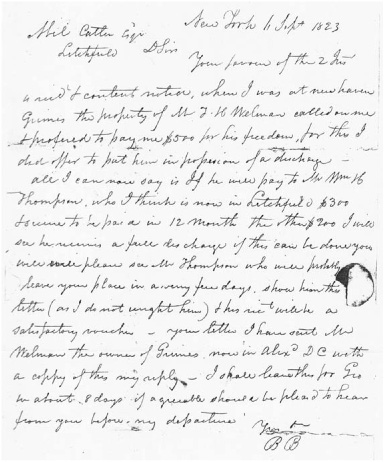 New York 11 Septr 1823
Abil Catlin Esqr
Litchfield
D Sir
Your favour of the 2 Ins
is recd & content notice, when I was at new haven
Grimes the property of Mr F H Welman called on me
& profered to pay me $500 for his freedom, for this I
did offer to put him in possession of a discharge –
all I can now say is If he will pay to Mr Wm H
Thompson, who I think is now in Litchfield $300
& secure to be paid in 12 month the other $200 I will
see he receives a full discharge if this can be done you
will please see Mr Thompson who will probably
leave your place in a very few days, show him the
letter (as I do not wright him) & his rect will be a
satisfactory voucher – your letter I have sent Mr
Welman the owner of Grimes now in Alexa DC with
a copy of this my reply – I shall leave this for Geo
in about 8 days if agreeable should be pleasd to hear
from you before my departure
Yours
B B